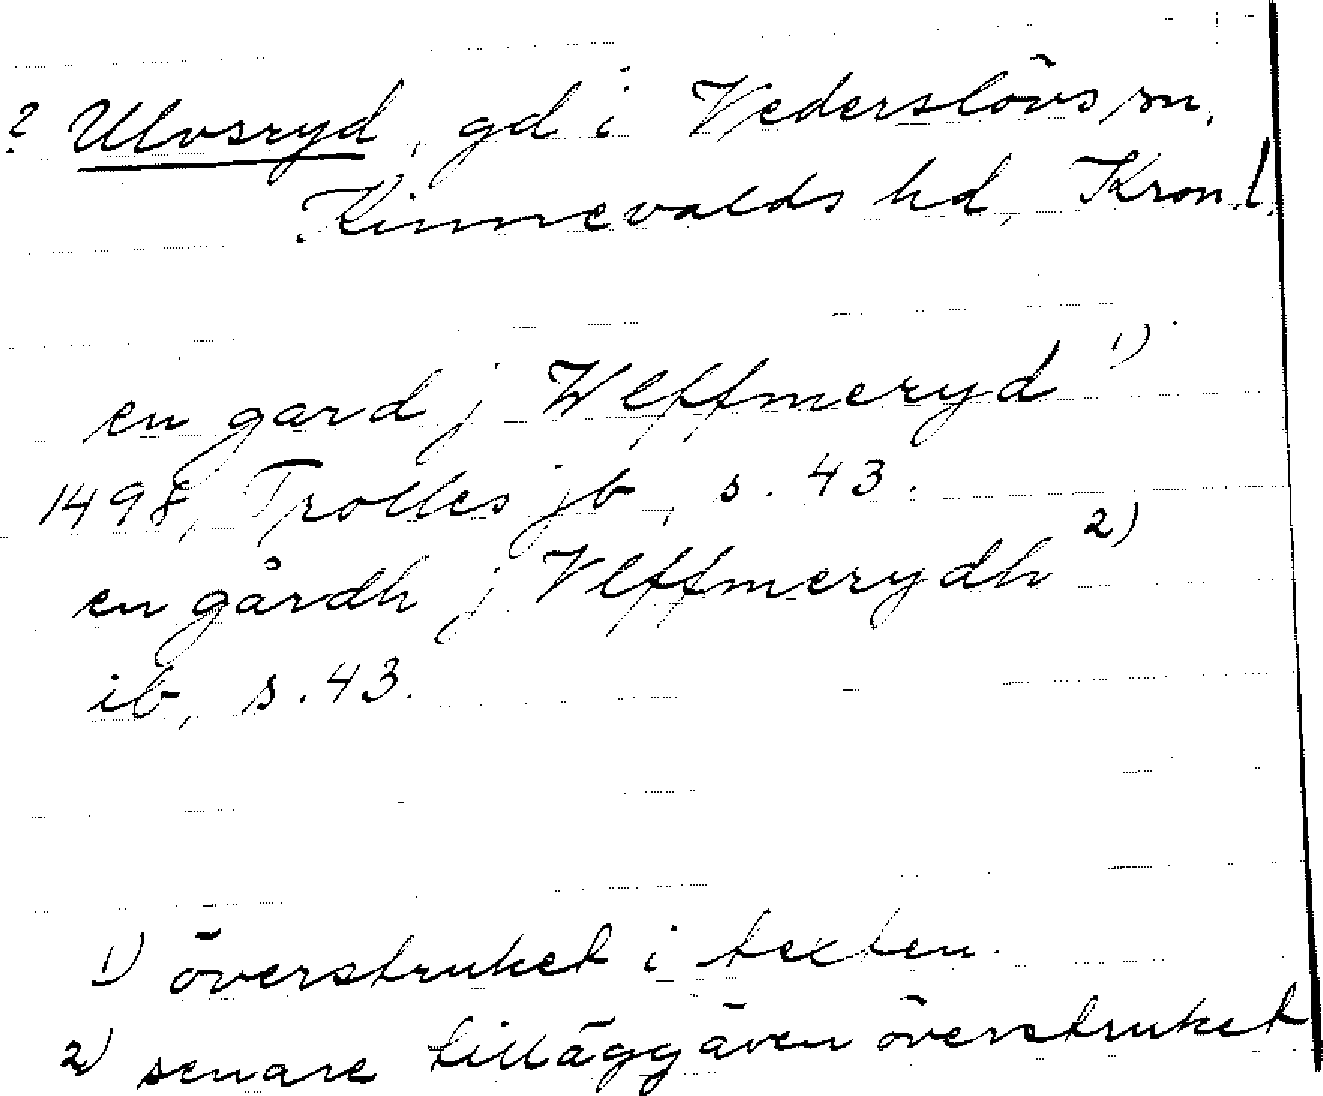 ? Ulvsryd, gd i Vederslövs sn,
Kinnevalds hd, Kron.l.
en gard j Wlffmeryd 1)
1498, Trolles jb, s. 43.
en gårdh j Vlffmerydh 2)
ib, s. 43.
1) överstruket i texten.
2) senare tillägg även överstruket